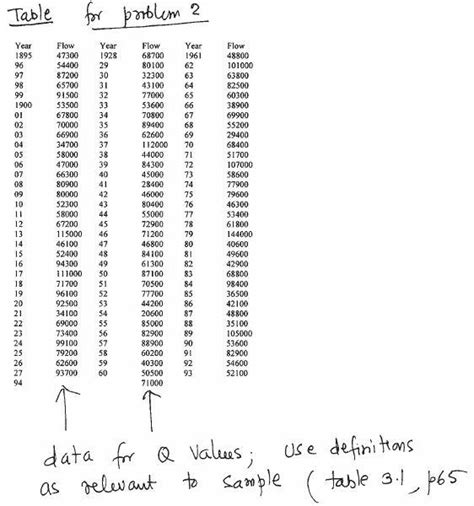 Table for problem 2
Year Flow Year Flow Year Flow
1895 47300 1928 68700 1961 48800
96 54400 29 80100 62 101000
97 87200 30 32300 63 63800
98 65700 31 43100 64 82500
99 91500 32 77000 65 60300
1900 53500 33 53600 66 38900
01 67800 34 70800 67 69900
02 70000 35 89400 68 55200
03 66900 36 62600 69 29400
04 34700 37 112000 70 68400
05 58000 38 44000 71 51700
06 47000 39 84300 72 107000
07 66300 40 45000 73 58600
08 80900 41 28400 74 77900
09 80000 42 46000 75 79600
10 52300 43 80400 76 46300
11 58000 44 55000 77 53400
12 67200 45 72900 78 61800
13 115000 46 71200 79 144000
14 46100 47 46800 80 40600
15 52400 48 84100 81 49600
16 94300 49 61300 82 42900
17 111000 50 87100 83 68800
18 71700 51 70500 84 98400
19 96100 52 77700 85 36500
20 92500 53 44200 86 42100
21 34100 54 20600 87 48800
22 69000 55 85000 88 35100
23 73400 56 82900 89 105000
24 99100 57 88900 90 53600
25 79200 58 60200 91 82900
26 62600 59 40300 92 54600
27 93700 60 50500 93 52100
94 71000
data for Q values; use definitions
as relevant to sample (table 3.1, p65